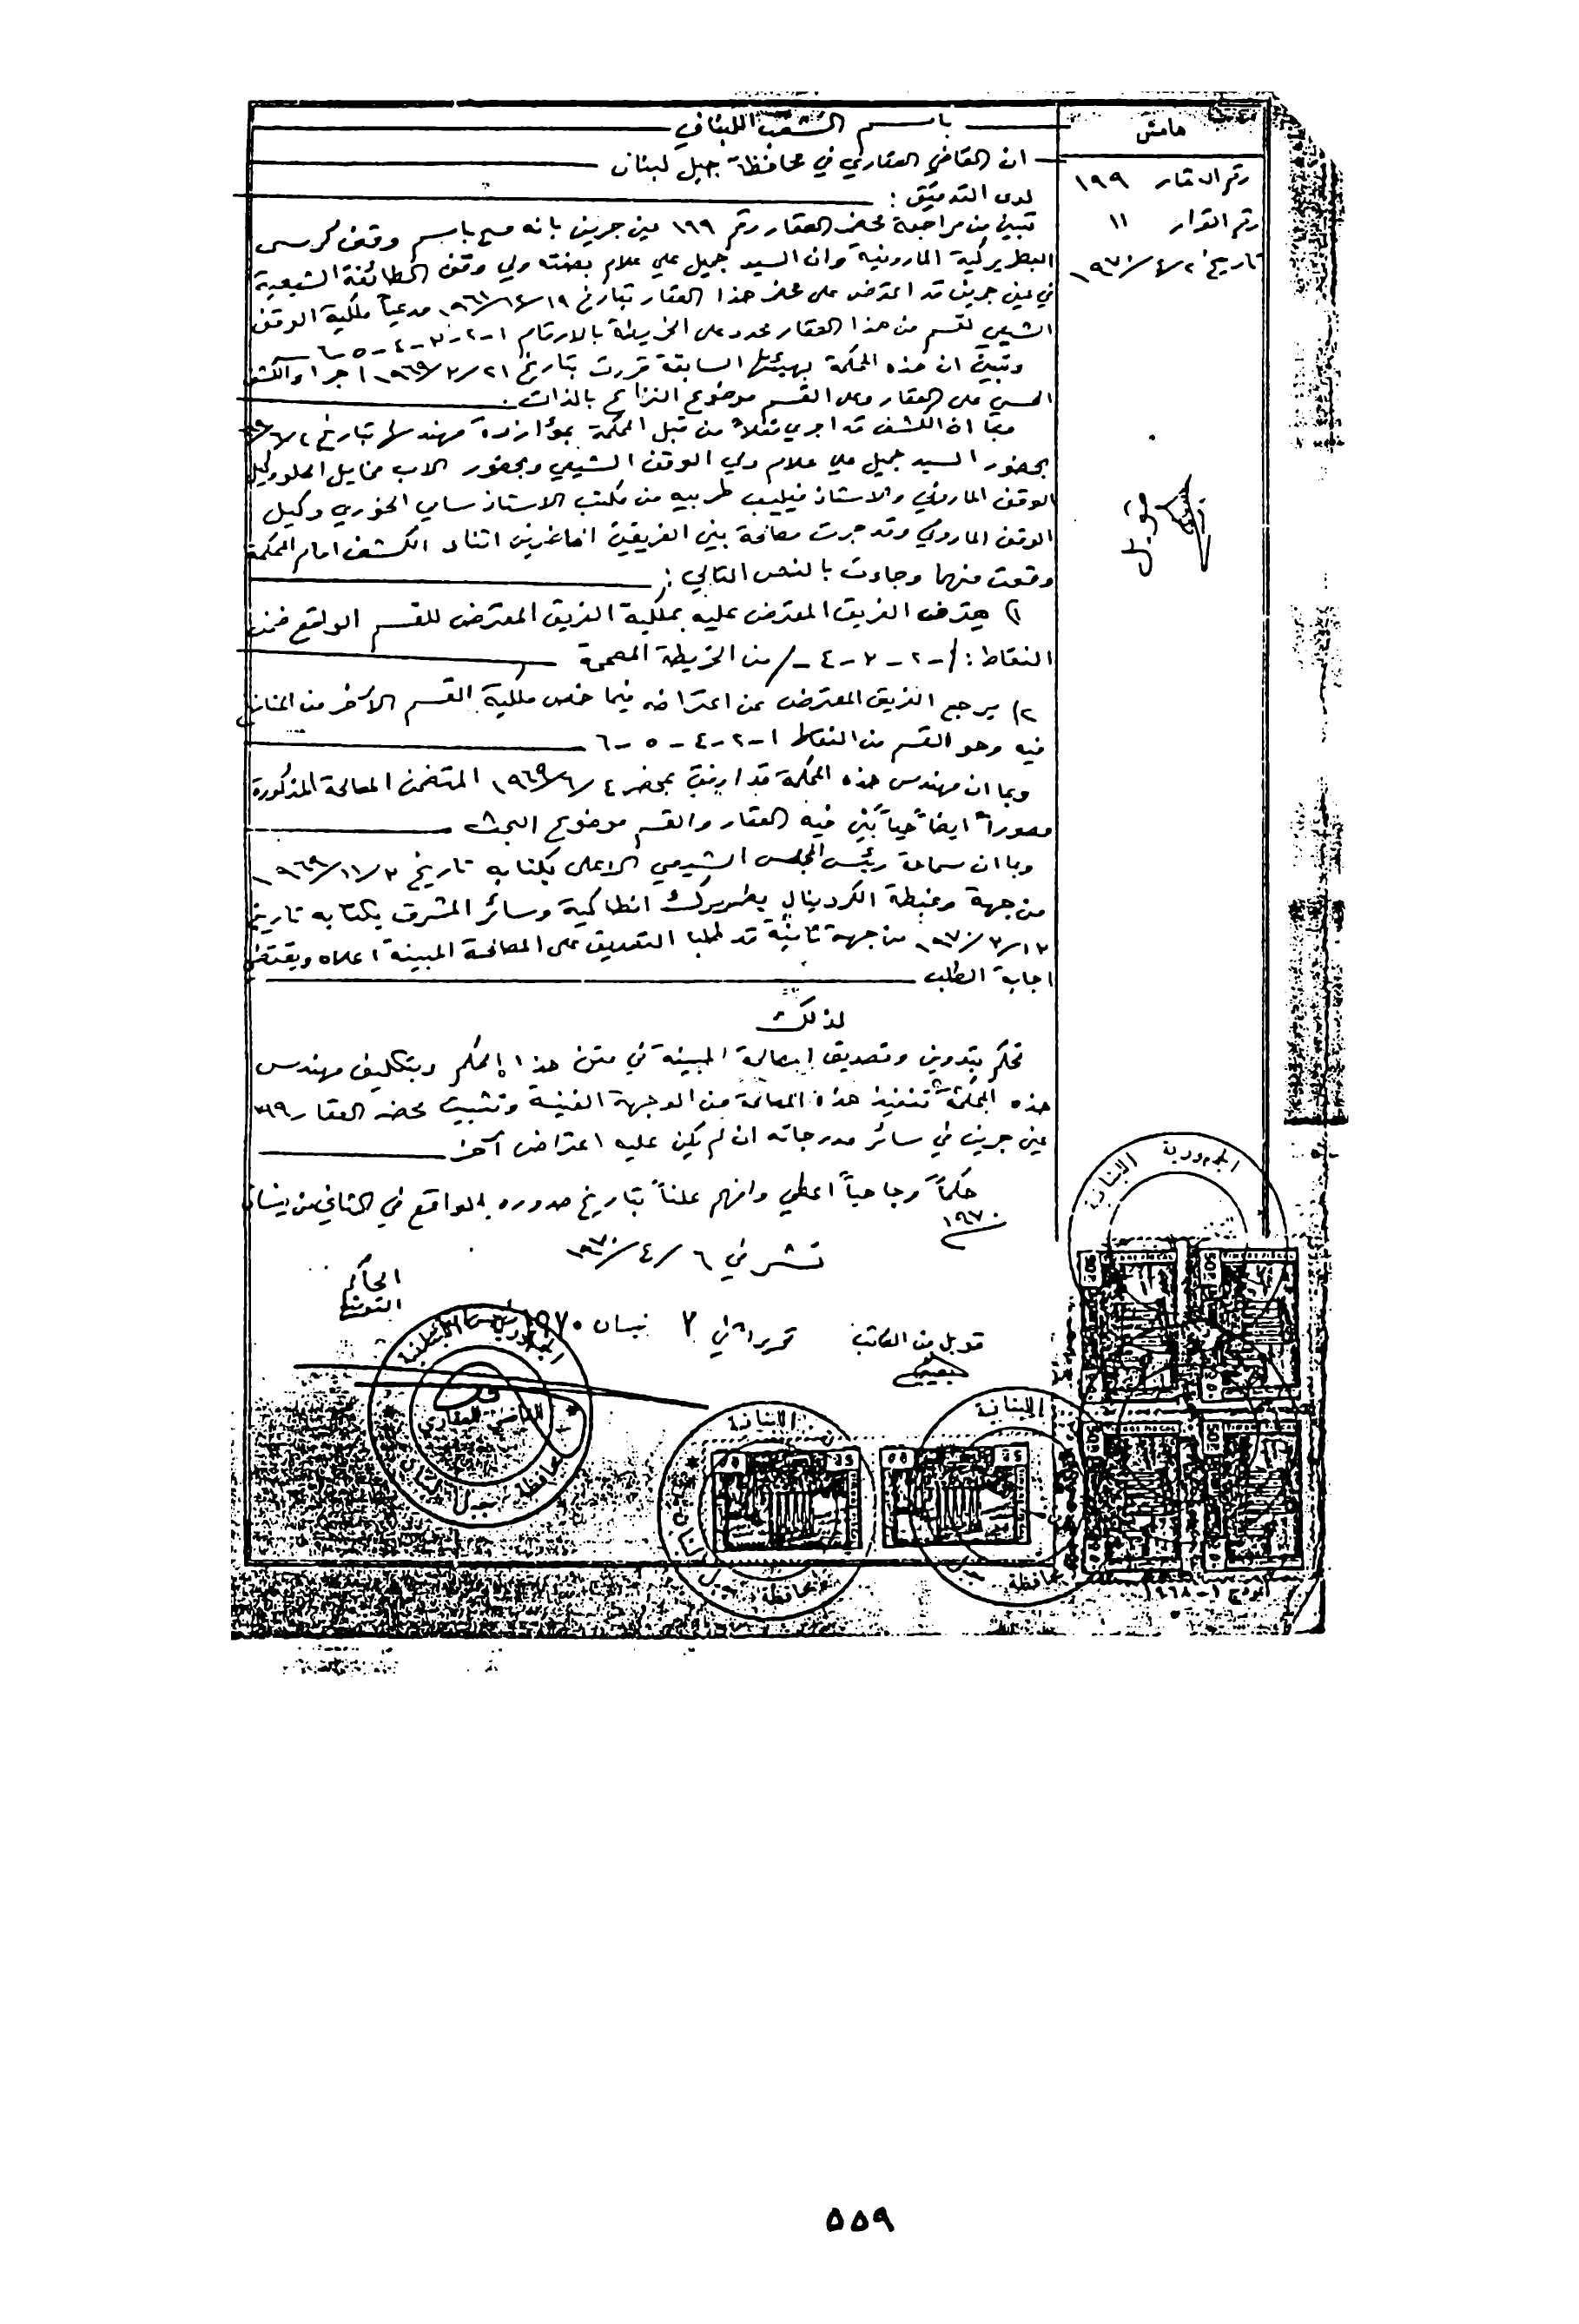 هامش
رقم العقار ١٩٩
رقم القرار ١١
تاريخ ٢/٤/١٩٧٠
باسم الشعب اللبناني
ان القاضي العقاري في محافظة جبل لبنان
لدى التدقيق :
تبين من مراجعة محضر العقار رقم ١٩٩ عين جرين بانه مسح باسم وقف كرسي
البطريركية المارونية وان السيد جميل علي علام بصفته ولي وقف الطائفة الشيعية
في عين جرين قد اعترض على محضر هذا العقار بتاريخ ١٩/١٢/١٩٦١ مدعياً ملكية الوقف
الشيعي لقسم من هذا العقار محدد على الخريطة بالارقام ١-٢-٣-٤-٥-٦
وتبين ان هذه المحكمة بهيئتها السابقة قررت بتاريخ ٢١/٣/١٩٦٩ اجراء الكشف
الحسي على العقار وعلى القسم موضوع النزاع بالذات.
وبما ان الكشف قد اجري فعلاً من قبل المحكمة بمؤازرة مهندسها بتاريخ ٤/٦/٦٩
بحضور السيد جميل علي علام ولي الوقف الشيعي وبحضور الاب مخايل الحلو وكيل
الوقف الماروني والاستاذ فيليب طربيه من مكتب الاستاذ سامي الخوري وكيل
الوقف الماروني وقد جرت مصالحة بين الفريقين الحاضرين اثناء الكشف امام المحكمة
وقعت منهما وجاءت بالنص التالي :
١) يعترف الفريق المعترض عليه بملكية الفريق المعترض للقسم الواقع ضمن
النقاط : /١-٢-٣-٤-/ من الخريطة المصححة
٢) يرجع الفريق المعترض عن اعتراضه فيما خص ملكية القسم الآخر من المنازع
فيه وهو القسم من النقاط ١-٢-٤-٥-٦
وبما ان مهندس هذه المحكمة قد ارفق بمحضر ٤/٦/١٩٦٩ المتضمن المصالحة المذكورة
مصوراً ايضاحياً بين فيه العقار والقسم موضوع البحث
وبما ان سماحة رئيس المجلس الشيعي الاعلى بكتابه تاريخ ٣/١١/١٩٦٩
من جهة وغبطة الكردينال بطريرك انطاكية وسائر المشرق بكتابه تاريخ
١٣/٣/١٩٧٠ من جهة ثانية قد طلبا التصديق على المصالحة المبينة اعلاه ويقتضي
اجابة الطلب
لذلك
نحكم بتدوين وتصديق المصالحة المبينة في متن هذا الحكم وبتكليف مهندس
هذه المحكمة تنفيذ هذه المصالحة من الوجهة الفنية وتثبيت محضر العقار ١٩٩
عين جرين في سائر مدرجاته ان لم يكن عليه اعتراض آخر
حكماً وجاهياً اعطي وافهم علناً بتاريخ صدوره الواقع في الثاني من نيسان
١٩٧٠
نشر في ٦/٤/١٩٧٠
الحاكم
التوقيع
قوبل من الكاتب
تحريرا في ٢ نيسان ١٩٧٠
الجمهورية اللبنانية
القاضي العقاري
محافظة جبل لبنان
اللبنانية
محافظة جبل لبنان
اللبنانية
محافظة جبل
الجمهورية اللبنانية
٥٥٩